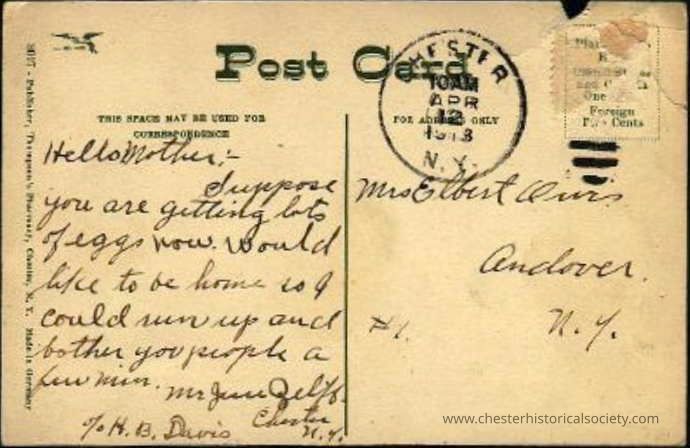 Post Card
THIS SPACE MAY BE USED FOR
CORRESPONDENCE
FOR ADDRESS ONLY
CHESTER
10AM
APR
12
1913
N.Y.
Foreign
Five Cents
Hello Mother:-
Suppose
you are getting lots
of eggs now. Would
like to be home so I
could run up and
bother you people a
few min.
Mr
Chester
N.Y.
c/o H. B. Davis
Mrs Elbert
Andover.
#1.
N.Y.
Publisher, Thompson's Pharmacy, Chester, N. Y. Made in Germany
www.chesterhistoricalsociety.com